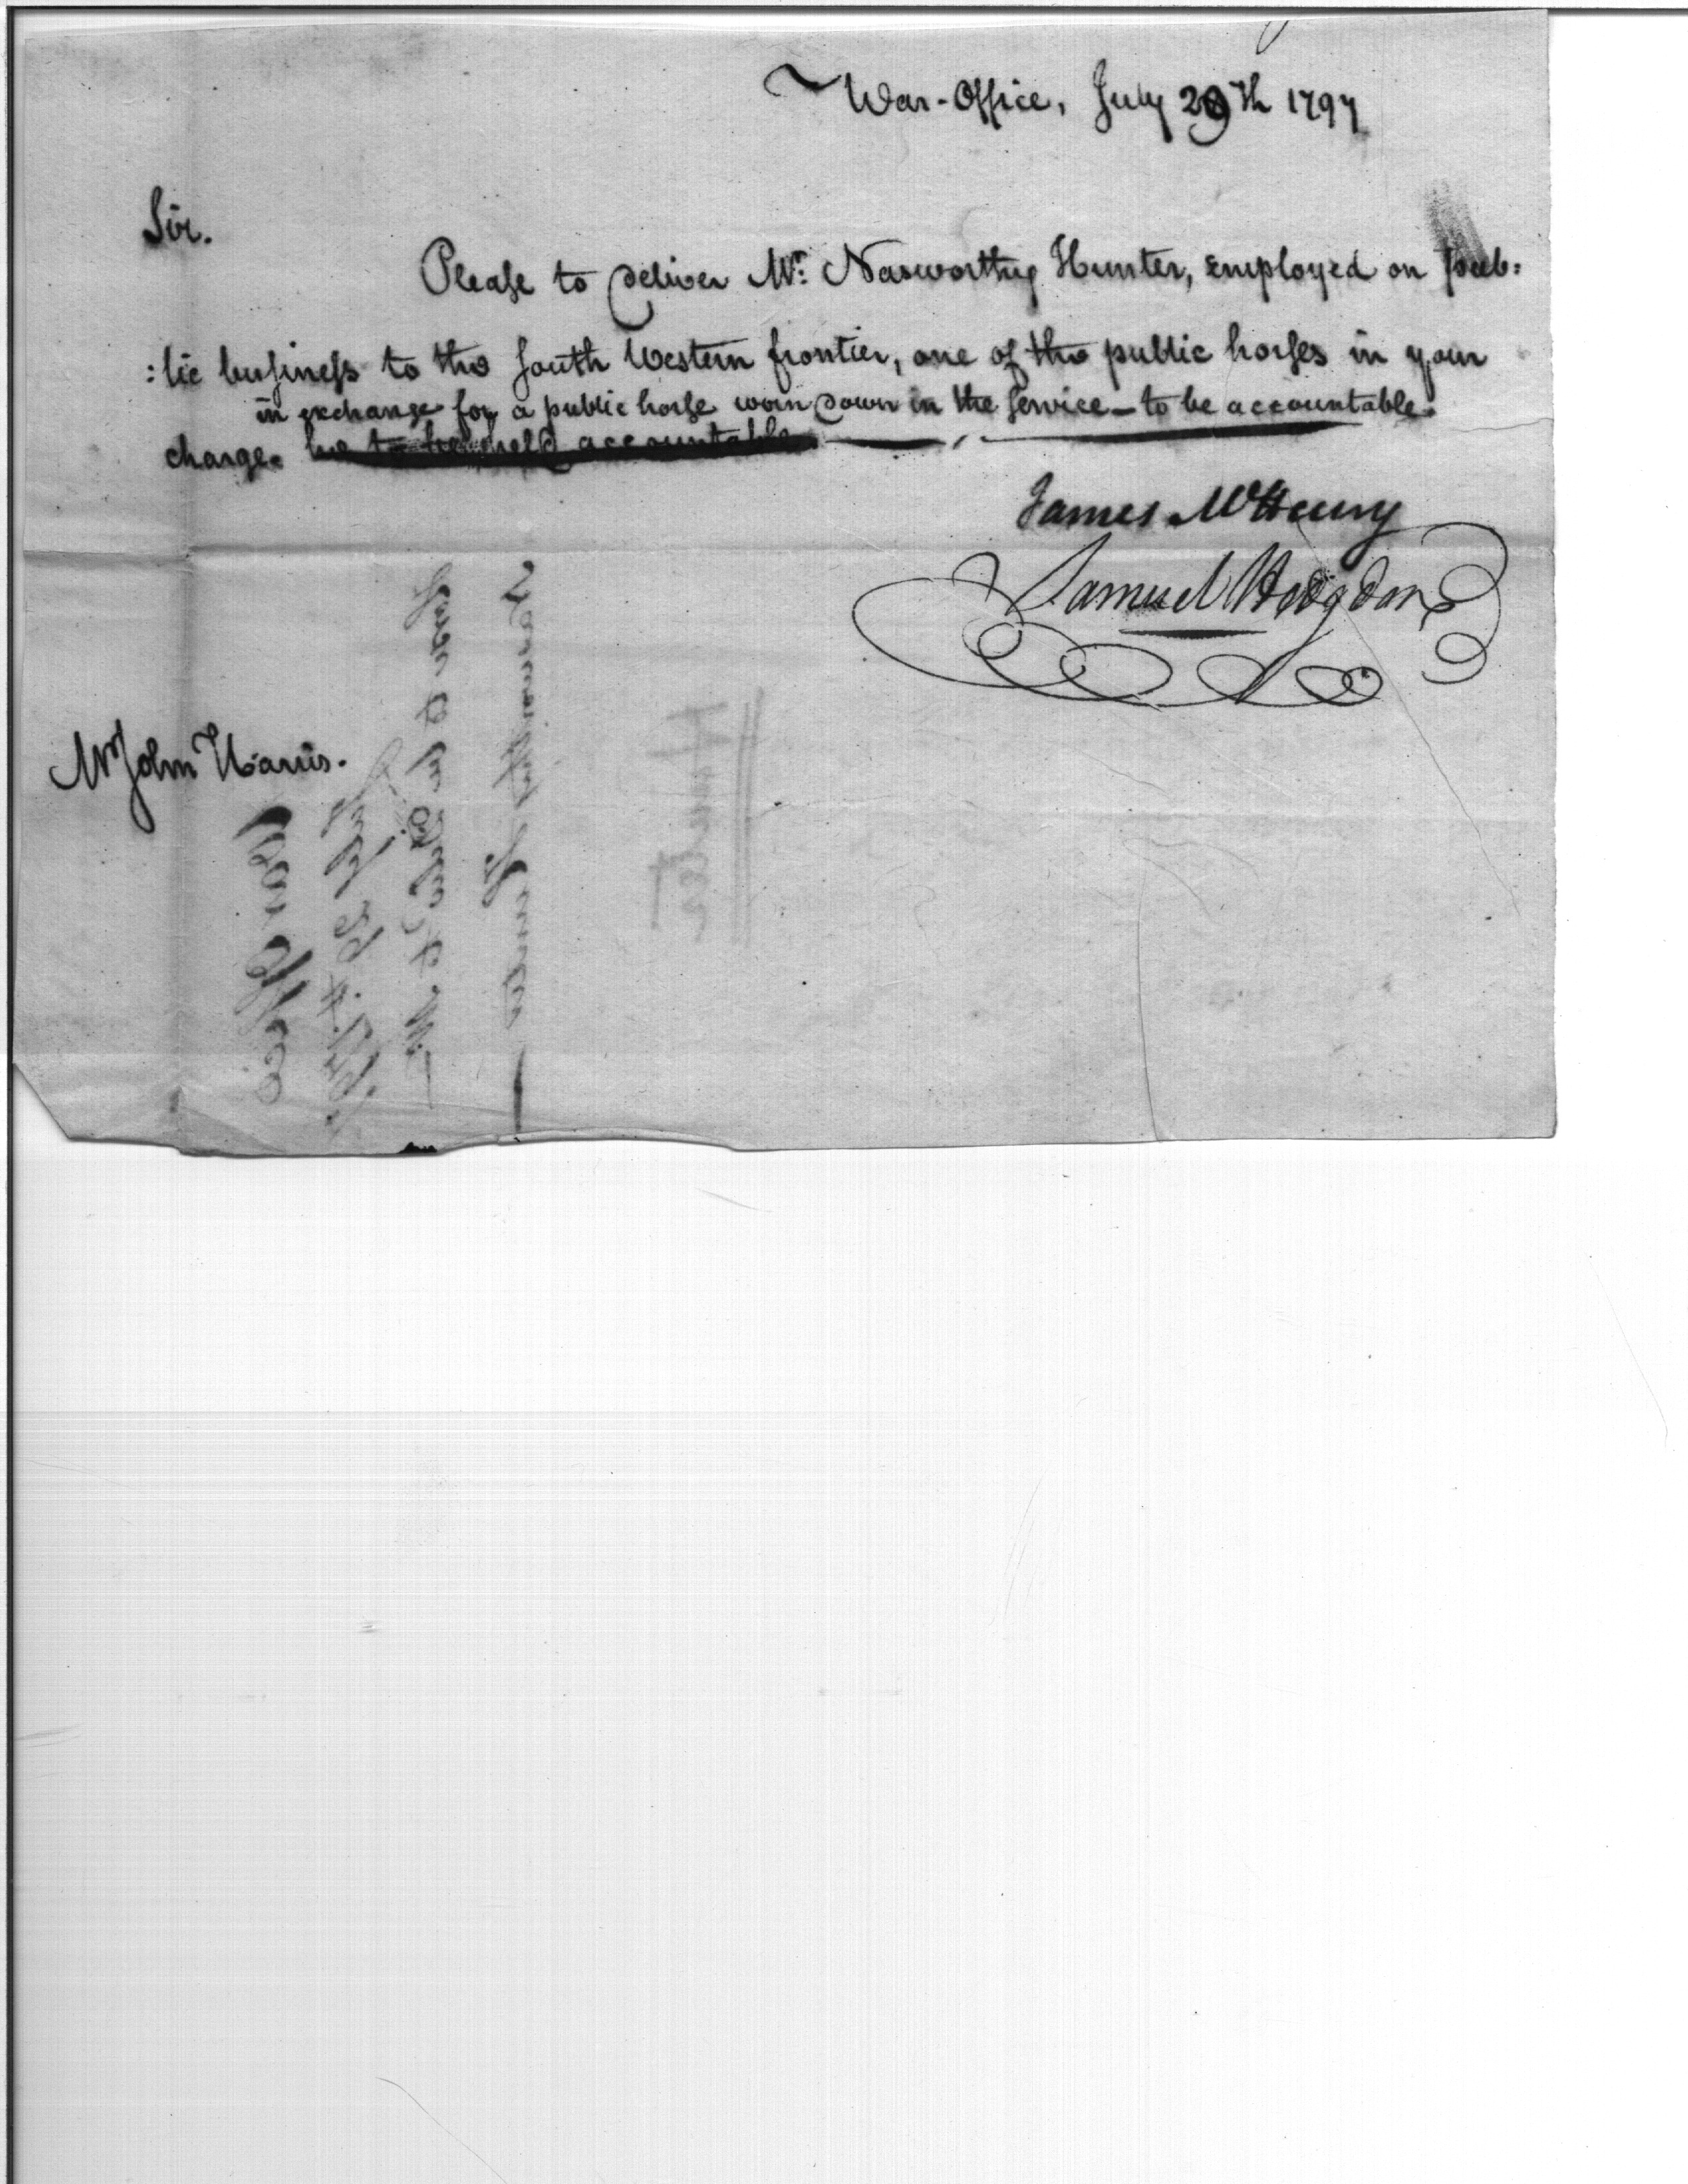 War-Office, July 29th 1797
Sir.
Please to deliver Mr: Nasworthy Hunter, employed on pub:
:lic business to the South Western frontier, one of the public horses in your
in exchange for a public horse worn down in the Service - to be accountable.
charge. he to be held accountable
James McHenry
Samuel Hodgdon
Mr John Harris.
Hunter